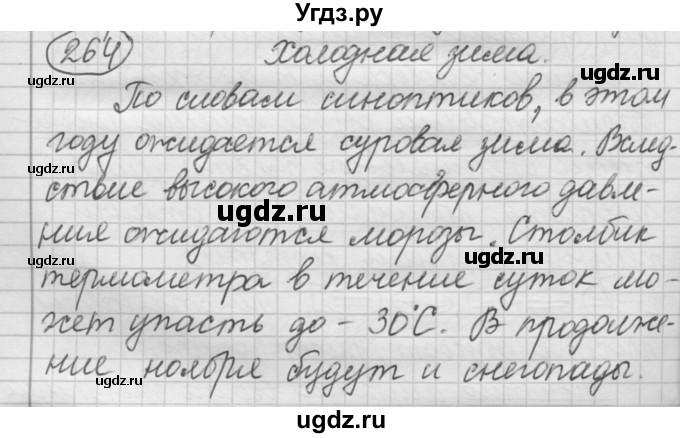 Угдз.ру
264 Холодная зима.
По словам синоптиков, в этом
году ожидается суровая зима. Вслед-
ствие высокого атмосферного давле-
ния ожидаются морозы. Столбик
термометра в течение суток мо-
жет упасть до - 30°С. В продолже-
ние ноября будут и снегопады.
ugdz.ru
ugdz.ru
ugdz.ru
ugdz.ru
ugdz.ru
ugdz.ru
ugdz.ru
ugdz.ru
ugdz.ru
ugdz.ru
ugdz.ru
ugdz.ru